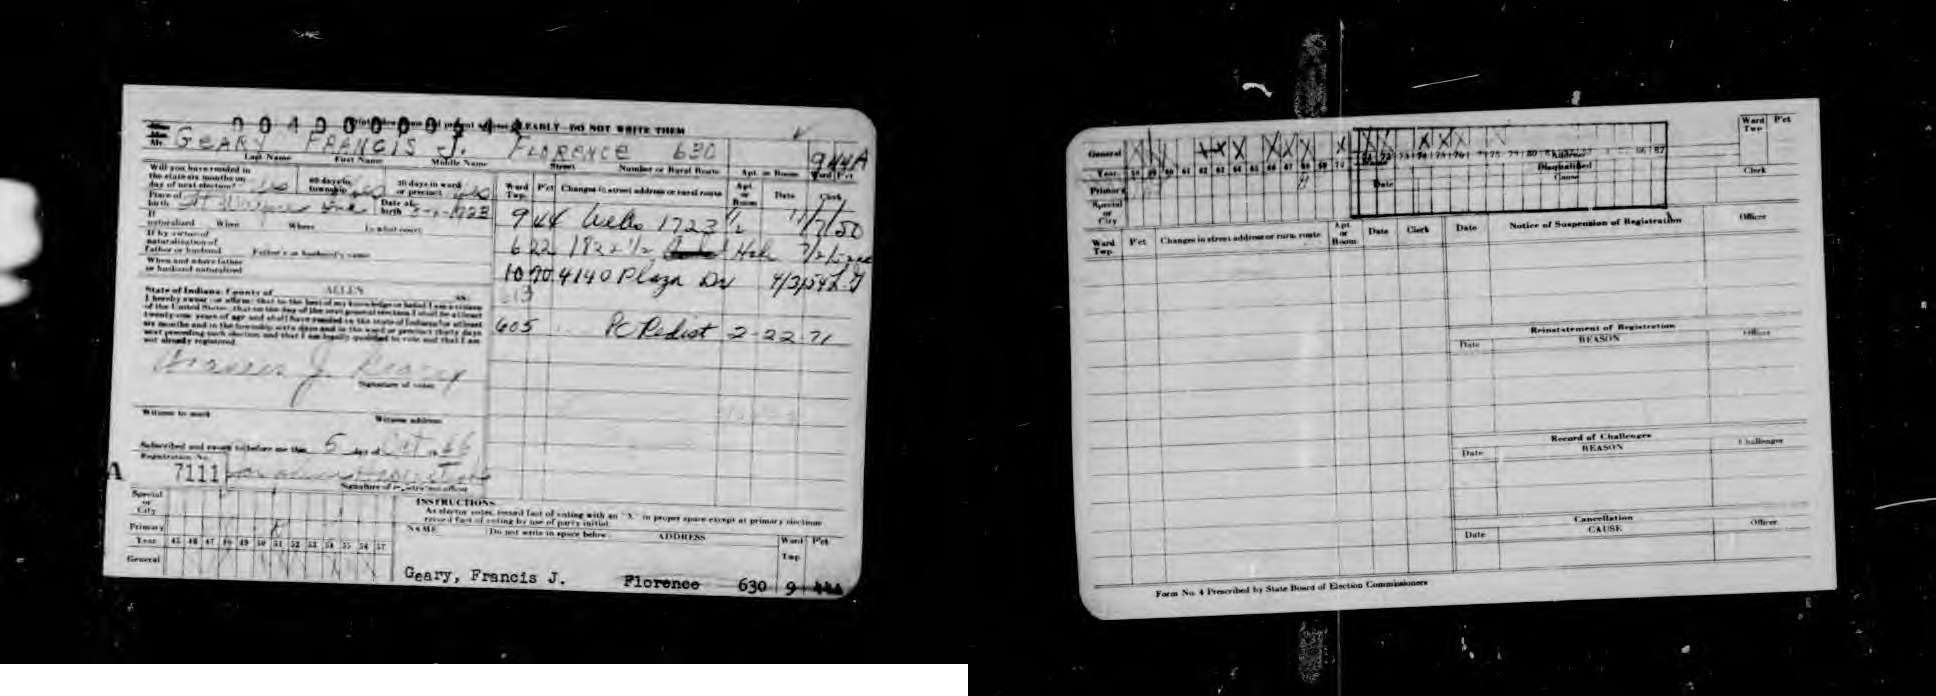 PLAINLY DO NOT WRITE THEM
Mr. GEARY FRANCIS J. FLORENCE 630 9 44A
Last Name First Name Middle Name Street Number or Rural Route Apt. or Room Ward P'ct
Will you have resided in
the state six months on
day of next election? 60 days in
township 30 days in ward
or precinct
Place of
birth Date of
birth
If
naturalized When Where In what court
If by virtue of
naturalization of
father or husband Father's or husband's name
When and where father
or husband naturalized
State of Indiana: County of ALLEN ss.
I hereby swear or affirm that to the best of my knowledge or belief I am a citizen
of the United States, that on the day of the next general election I shall be at least
twenty-one years of age and shall have resided in the state of Indiana for at least
six months and in the township sixty days and in the ward or precinct thirty days
next preceding such election, and that I am legally qualified to vote and that I am
not already registered.
Francis J. Geary
Signature of voter
Witness to mark Witness address
Subscribed and sworn to before me this 5 day of Oct 19 46
Registration No.
A 7111
Signature of registration officer
Ward
Twp. P'ct Changes in street address or rural route Apt.
or
Room Date Clerk
9 44 Wells 1723 1/2 11/7/50
6 22 1822 1/2
10 70 4140 Plaza Dr 4/3/54
13
605 PC Redist 2-22-71
Special
or
City
Primary
Year 45 46 47 48 49 50 51 52 53 54 55 56 57
General
INSTRUCTIONS
As elector votes, record fact of voting with an "X" in proper space except at primary elections
record fact of voting by use of party initial.
NAME Do not write in space below ADDRESS Ward
Twp P'ct
Geary, Francis J. Florence 630 9 44A
General
Year 58 59 60 61 62 63 64 65 66 67 68 69 70
Primary
Special
or
City
Disqualified
Date Cause
Ward
Twp P'ct
Clerk
Ward
Twp. P'ct Changes in street address or rural route Apt.
or
Room Date Clerk
Date Notice of Suspension of Registration Officer
Reinstatement of Registration
Date REASON Officer
Record of Challenges
Date REASON Challenger
Cancellation
Date CAUSE Officer
Form No. 4 Prescribed by State Board of Election Commissioners